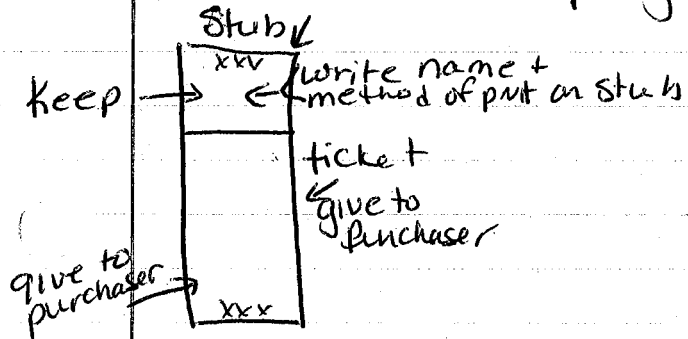 Stub
xxv
write name +
Keep
method of pmt on Stub
ticket
give to
purchaser
give to
purchaser
xxx